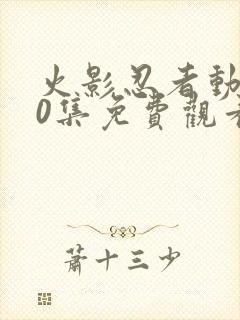 火影忍者動
0集免費觀看
蕭十三少